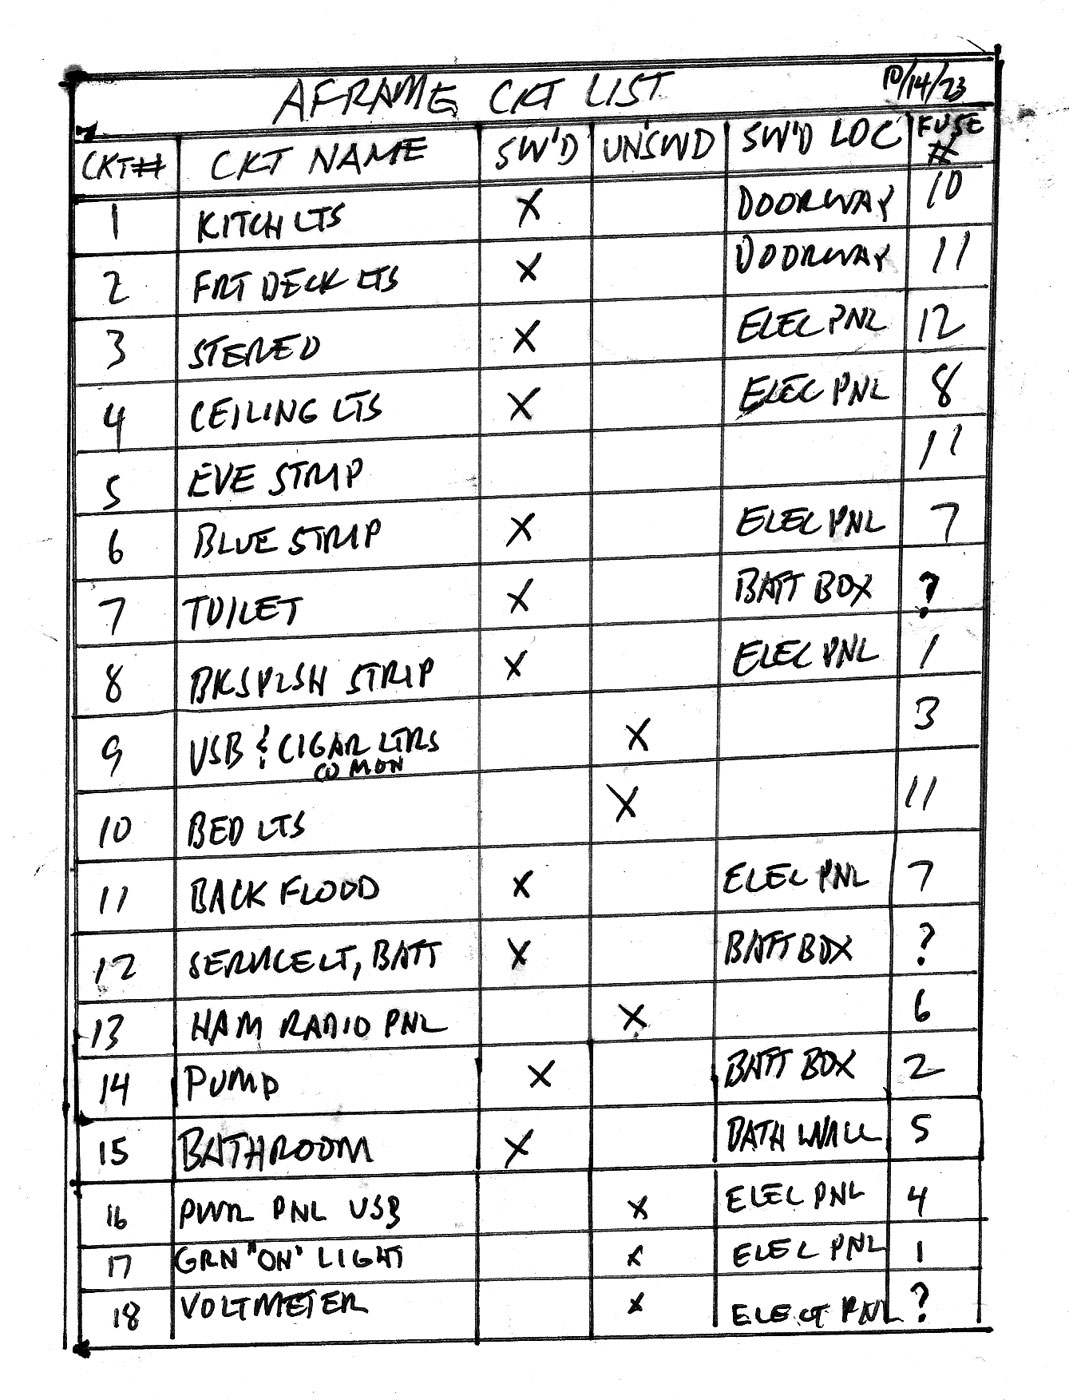 AFRAME CKT LIST 10/14/23
CKT# CKT NAME SW'D UN'SWD SW'D LOC FUSE #
1 KITCH LTS X DOORWAY 10
2 FRT DECK LTS X DOORWAY 11
3 STEREO X ELEC PNL 12
4 CEILING LTS X ELEC PNL 8
5 EVE STRIP 11
6 BLUE STRIP X ELEC PNL 7
7 TOILET X BATT BOX ?
8 BKSPLSH STRIP X ELEC PNL 1
9 USB & CIGAR LTRS X 3
COMMON
10 BED LTS X 11
11 BACK FLOOD X ELEC PNL 7
12 SERVICE LT, BATT X BATT BOX ?
13 HAM RADIO PNL X 6
14 PUMP X BATT BOX 2
15 BATHROOM X BATH WALL 5
16 PWR PNL USB X ELEC PNL 4
17 GRN "ON" LIGHT X ELEC PNL 1
18 VOLTMETER X ELECT PNL ?